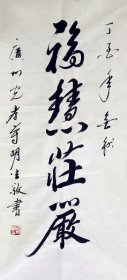 丁酉年金秋
福慧庄嚴
廣州光孝寺明生敬書